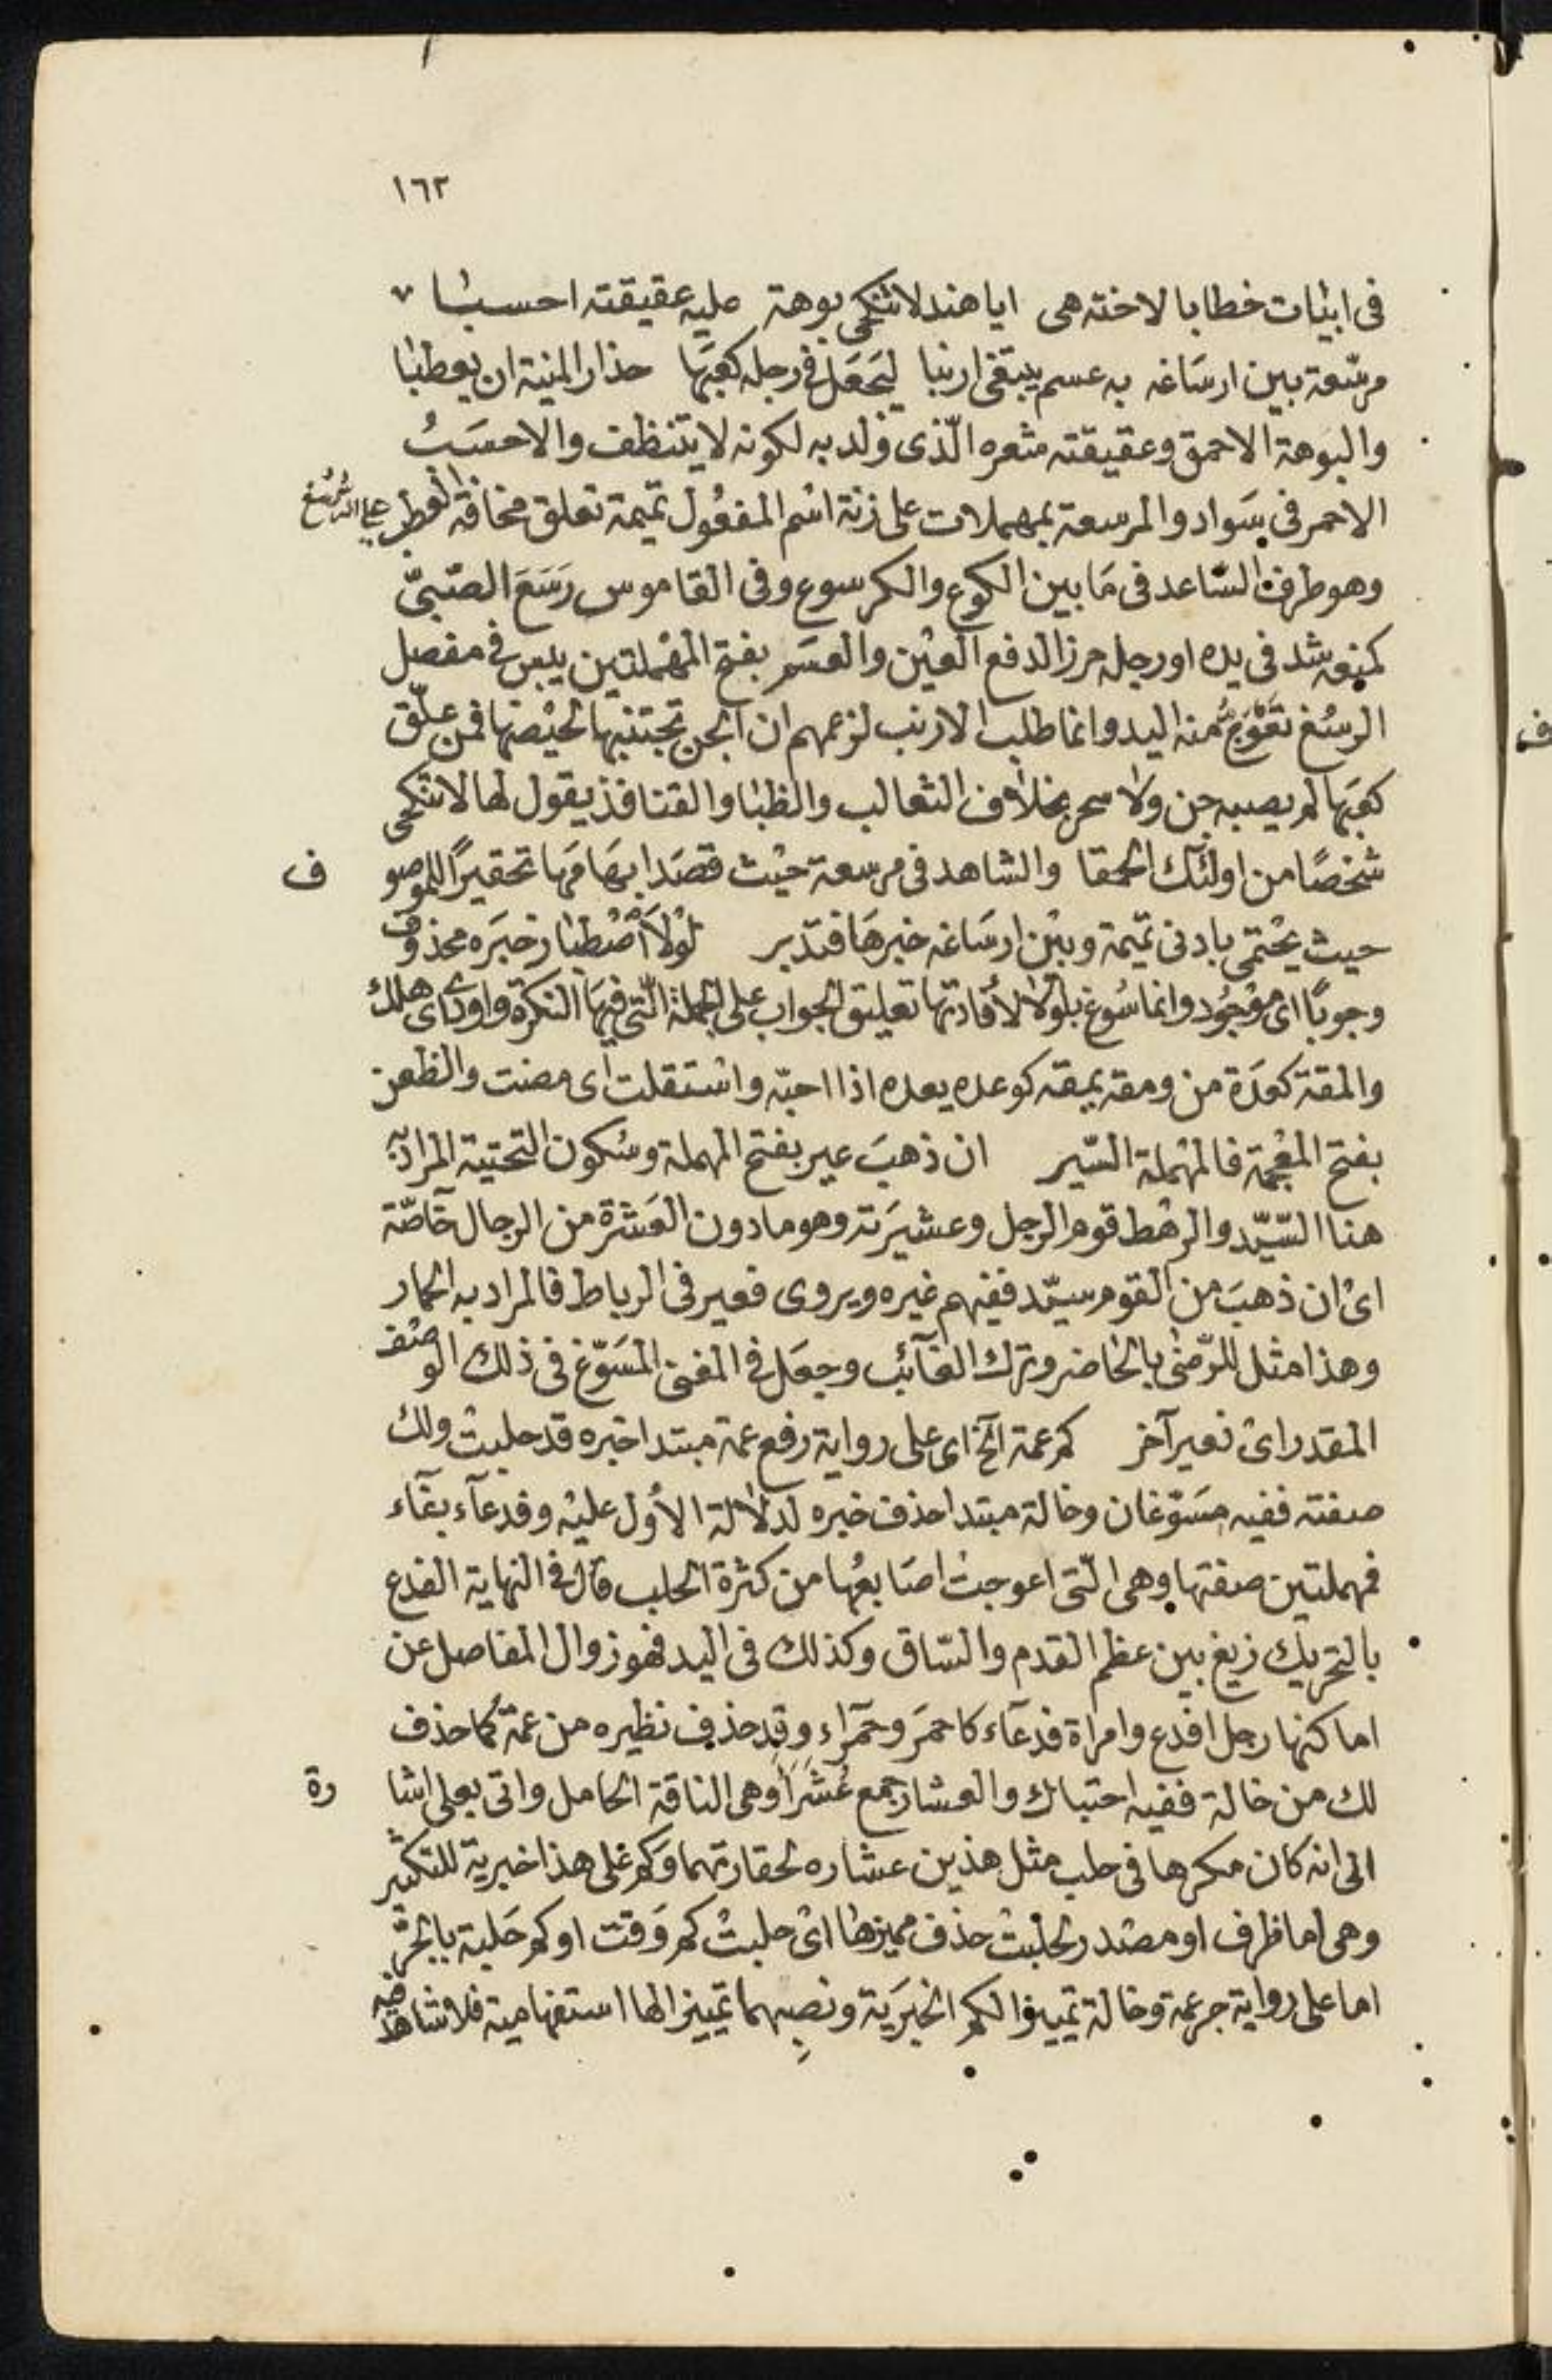 ١٦٢
فى ابيات خطابا لاخته هى ايا هند لا تنكحى بوهة عليه عقيقته احسبا
مرسّعة بين ارساغه به عسم يبتغى ارنبا ليجعل فى رجله كعبها حذار المنية ان يعطبا
والبوهة الاحمق وعقيقته شعره الّذى ولد به لكونه لا يتنظف والاحسبُ
الاحمر فى سواد والمرسعة بمهملات على زنة اسم المفعول تميمة تعلق مخافة العطب على الرسغ
وهو طرف الساعد فى ما بين الكوع والكرسوع وفى القاموس رَسَعَ الصّبىّ
كمنع شد فى يده او رجله خرزا لدفع العين والعسم بفتح المهملتين يبس فى مفصل
الرسغ تعوّج منه اليد وانما طلب الارنب لزعمهم ان الجن تجتنبها لحيضها فمن علّق
كعبها لم يصبه جن ولا سحر بخلاف الثعالب والظبا والقنافذ يقول لها لا تنكحى
شخصًا من اولئك الحمقا والشاهد فى مرسعة حيث قصد ابهامها تحقيرًا للموصو ف
حيث يحتمى بادنى تميمة وبين ارساغه خبرها فتدبر لولا اصطبار خبره محذوف
وجوبًا اى موجود وانما سوغ بلولا لافادتها تعليق الجواب على الجملة الّتى فيها النكرة واودى اى هلك
والمقة كعدة من ومقه يمقه كوعده يعده اذا احبّه واستقلت اى مضت والظعن
بفتح المعجمة فالمهملة السّير ان ذهب عير بفتح المهملة وسكون التحتية المراد به
هنا السّيّد والرهط قوم الرجل وعشيرته وهو ما دون العشرة من الرجال خاصّة
اى ان ذهب من القوم سيّد ففيهم غيره ويروى فعير فى الرباط فالمراد به الحمار
وهذا مثل للرّضى بالحاضر وترك الغائب وجعل فى المغنى المسوّغ فى ذلك الوصف
المقدر اى فعير آخر كم عمة الخ اى على رواية رفع عمة مبتدا خبره قد حلبت ولك
صفته ففيه مسوّغان وخالة مبتدا حذف خبره لدلالة الاول عليه وفدعآء بفآء
فمهملتين صفتها وهى الّتى اعوجت اصابعها من كثرة الحلب قال فى النهاية الفدع
بالتحريك زيغ بين عظم القدم والسّاق وكذلك فى اليد فهو زوال المفاصل عن
اماكنها رجل افدع وامراة فدعآء كاحمر وحمرآء وقد حذف نظيره من عمة كما حذف
لك من خالة ففيه احتباك والعشار جمع عُشَراَ وهى الناقة الحامل واتى بعلى اشا رة
الى انه كان مكرها فى حلب مثل هذين عشاره لحقارتهما وكم على هذا خبرية للتكثير
وهى اما ظرف او مصدر لحلبت حذف مميزها اى حلبت كم وقت او كم حلبة بالجرّ
اما على رواية جر عمة وخالة تمييزا لكم الخبرية ونصبهما تمييزا لها استفهامية فلا شاهد فيه